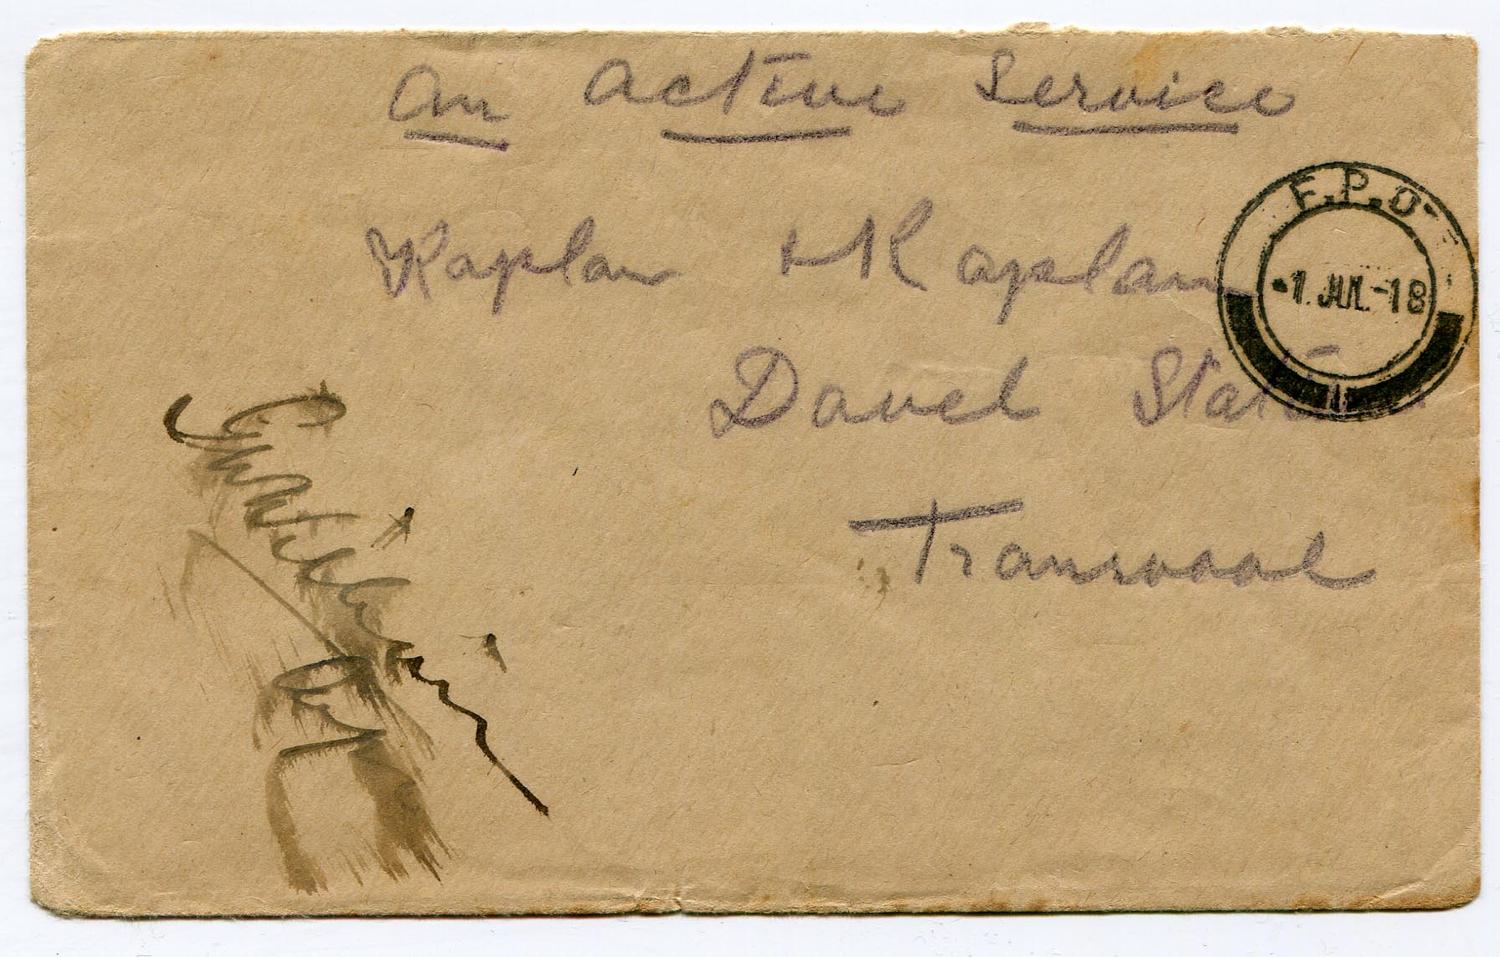 On active Service
F.P.O
1. JUL.-18
Kaplan + Kaplan
Davel Statn
Transvaal